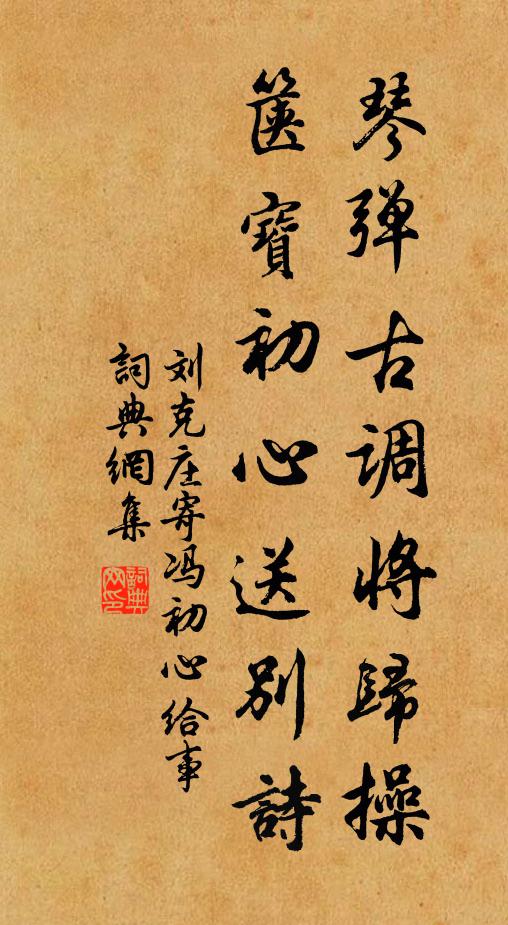 琴弹古调将歸操
篋寶初心送别詩
刘克庄寄冯初心给事
詞典網集
詞典网印